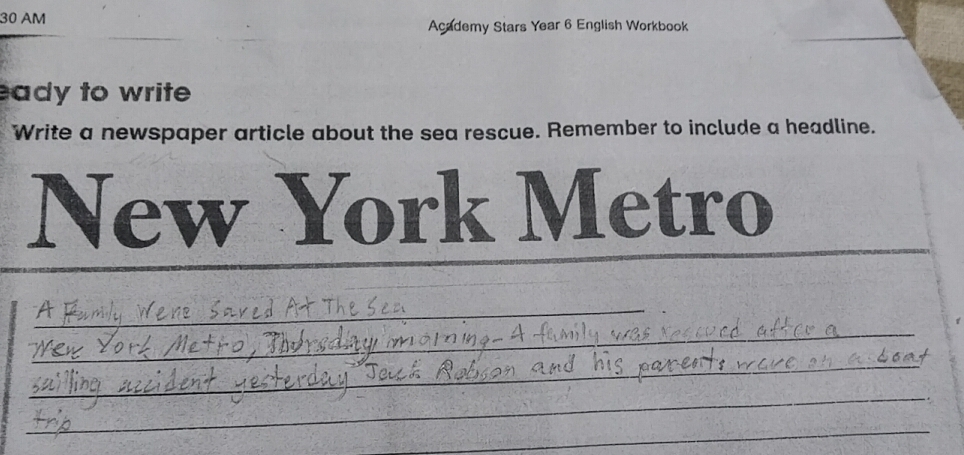 30 AM
Academy Stars Year 6 English Workbook
eady to write
Write a newspaper article about the sea rescue. Remember to include a headline.
New York Metro
A Family Were Saved At The Sea
New York Metro, Thursday morning - A family was rescued after a
sailing accident yesterday Jack Robson and his parents were on a boat
trip